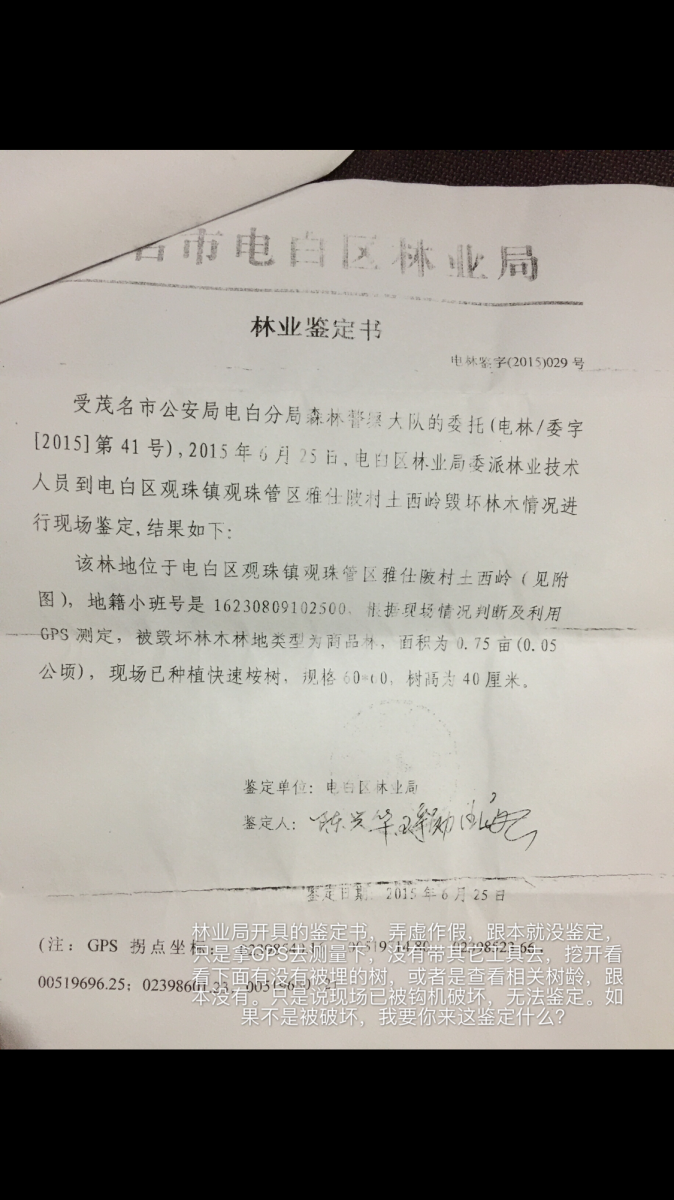 名市电白区林业局
林业鉴定书
电林鉴字(2015)029号
受茂名市公安局电白分局森林警察大队的委托(电林/委字
[2015]第41号),2015年6月25日,电白区林业局委派林业技术
人员到电白区观珠镇观珠管区雅仕陂村土西岭毁坏林木情况进
行现场鉴定,结果如下:
该林地位于电白区观珠镇观珠管区雅仕陂村土西岭(见附
图),地籍小班号是16230809102500,依据现场情况判断及利用
GPS测定,被毁坏林木林地类型为商品林,面积为0.75亩(0.05
公顷),现场已种植快速桉树,规格60*60,树高为40厘米。
鉴定单位:电白区林业局
鉴定人:陈兴华
鉴定日期:2015年6月25日
(注:GPS 拐点坐标:
00519696.25;02398601.23,
林业局开具的鉴定书,弄虚作假,跟本就没鉴定,
只是拿GPS去测量下,没有带其它工具去,挖开看
看下面有没有被埋的树,或者是查看相关树龄,跟
本没有。只是说现场已被钩机破坏,无法鉴定。如
果不是被破坏,我要你来这鉴定什么?